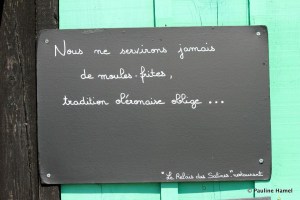 Nous ne servirons jamais
de moules-frites,
tradition oléronaise oblige ...
"Le Relais des Salines" restaurant
© Pauline Hamel